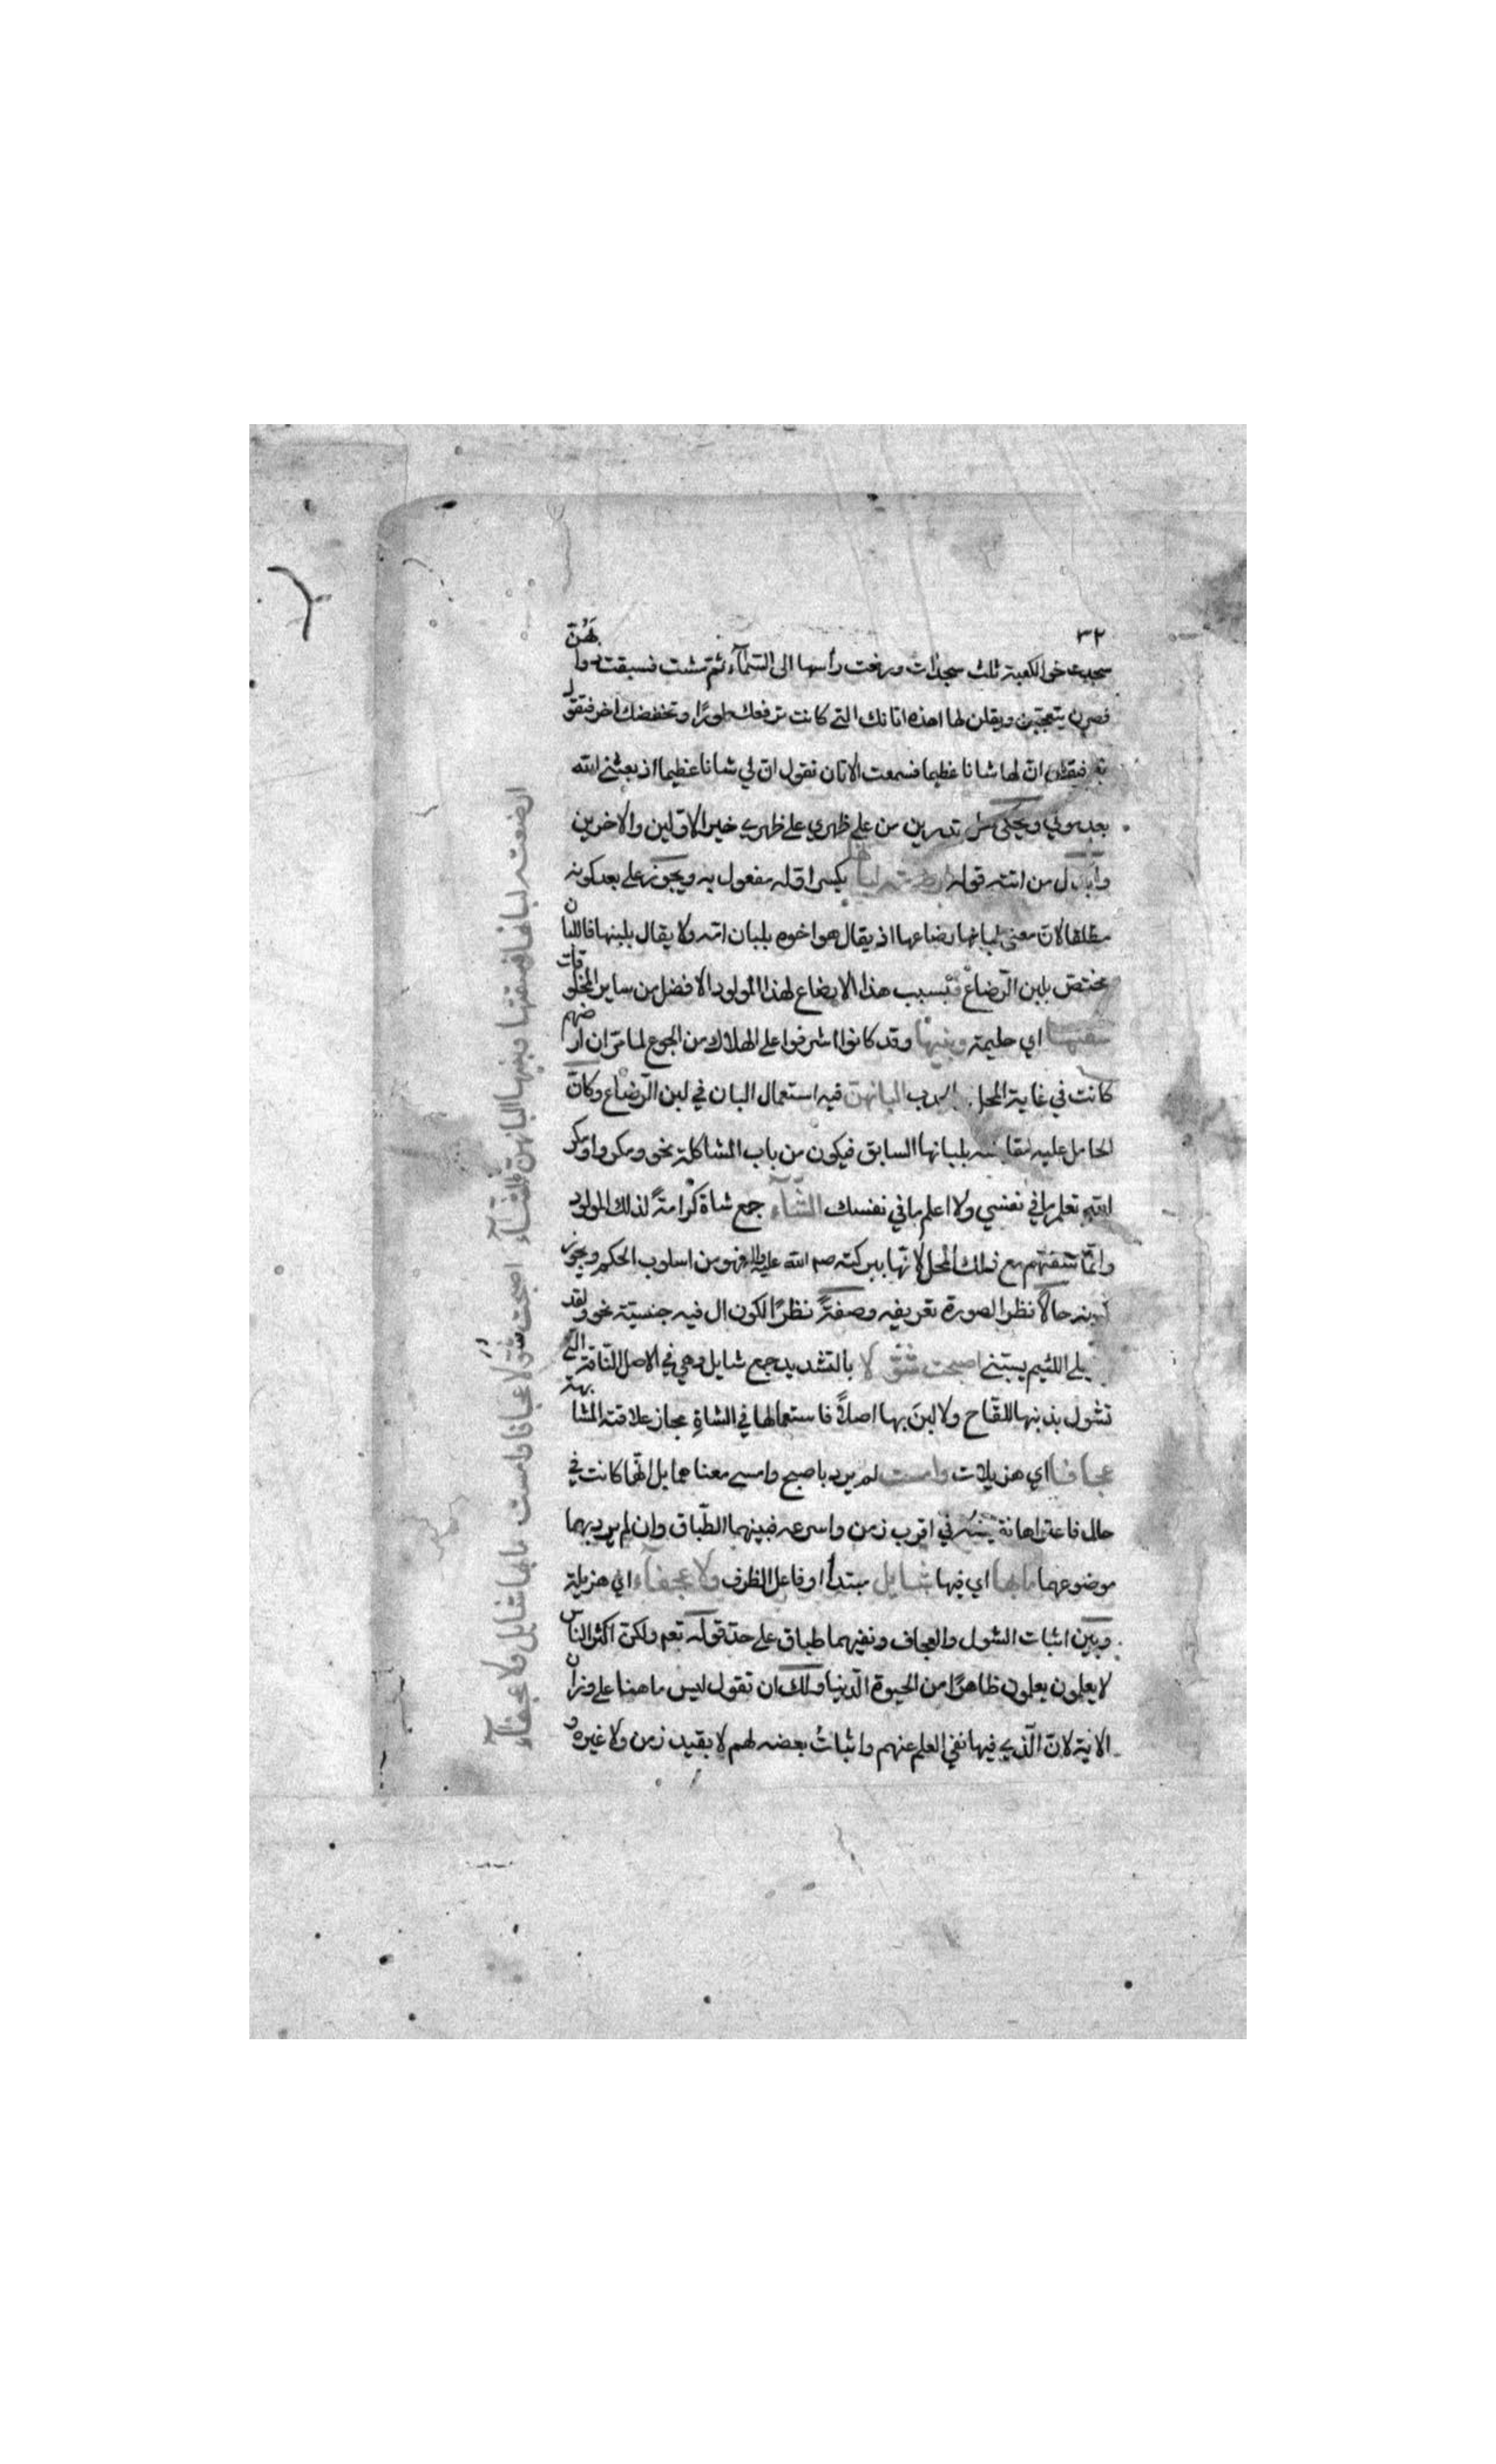 ٣٢
سجدت نحو الكعبة ثلث سجدات ورفعت رأسها الى السّمآء ثم مشت فسبقت دوابهنّ
فصرن يتعجبن ويقلن لها اهذه اتانك التي كانت ترفعك طورًا وتخفضك اخر فتقول
فيقلن انّ لها شانا عظيما فسمعت الاتان تقول انّ لي شانا عظيما اذ بعثني الله
بعد موتي ويحكن هل تدرين من على ظهري على ظهري خير الاوّلين والاخرين
وابدل من اتته قوله ارضعته لبانها بكسر اوّله مفعول به ويجوز على بعد كونه
مطلقا لانّ معنى لبانها رضاعها اذ يقال هو اخوه بلبان امّه ولا يقال بلبنها فاللبان
مختصّ بلبن الرّضاع فبسبب هذا الارضاع لهذا المولود الافضل من ساير المخلوقات
سقتها اي حليمة وبنيها وقد كانوا اشرفوا على الهلاك من الجوع لما مرّ ان ارضهم
كانت في غاية المحل البانهنّ فيه استعمال البان في لبن الرّضاع وكانّ
الحامل عليه مقابلته بلبانها السابق فيكون من باب المشاكلة نحو ومكروا ومكر
الله تعلم ما في نفسي ولا اعلم ما في نفسك الشّآء جمع شاة كرامةً لذلك المولود
وانّما سقتهم مع ذلك المحل لانّها ببركته صلى الله عليه وسلم فهو من اسلوب الحكم ويجوز
كونه حالًا نظرا لصورة تعريفه وصفةً نظرًا لكون ال فيه جنسيّة نحو ولقد
على اللئيم يسبّني اصبحت شوّلا بالتشديد جمع شايل وهي في الاصل النّاقة الّتي
تشول بذنبها للقاح ولا لبن بها اصلًا فاستعمالها في الشاةِ مجاز علاقته المشابهة
عجافا اي هزيلات وامست لم يرد باصبح وامسى معناهما بل انّها كانت في
حال فاعة الهانة في اقرب زمن واسرعه فبينهما الطّباق وان لم يرد بهما
موضوعهما ما بها اي فيها شايل مبتدأ او فاعل الظرف ولا عجفآء اي هزيلة
وبين اثبات الشول والعجاف ونفيهما طباق على حدّ قوله تعم ولكنّ اكثر الناس
لا يعلمون يعلمون ظاهرًا من الحيوة الدّنيا ولك ان تقول ليس ما هنا على وزان
الاية لانّ الّذي فيها نفي العلم عنهم واثباتُ بعضه لهم لا بقيد زمن ولا غيره و
ارضعته لبانها فسقتها وبنيها البانهنّ الشّآء اصبحت شوّلا عجافا وامست ما بها شايل ولا عجفآء